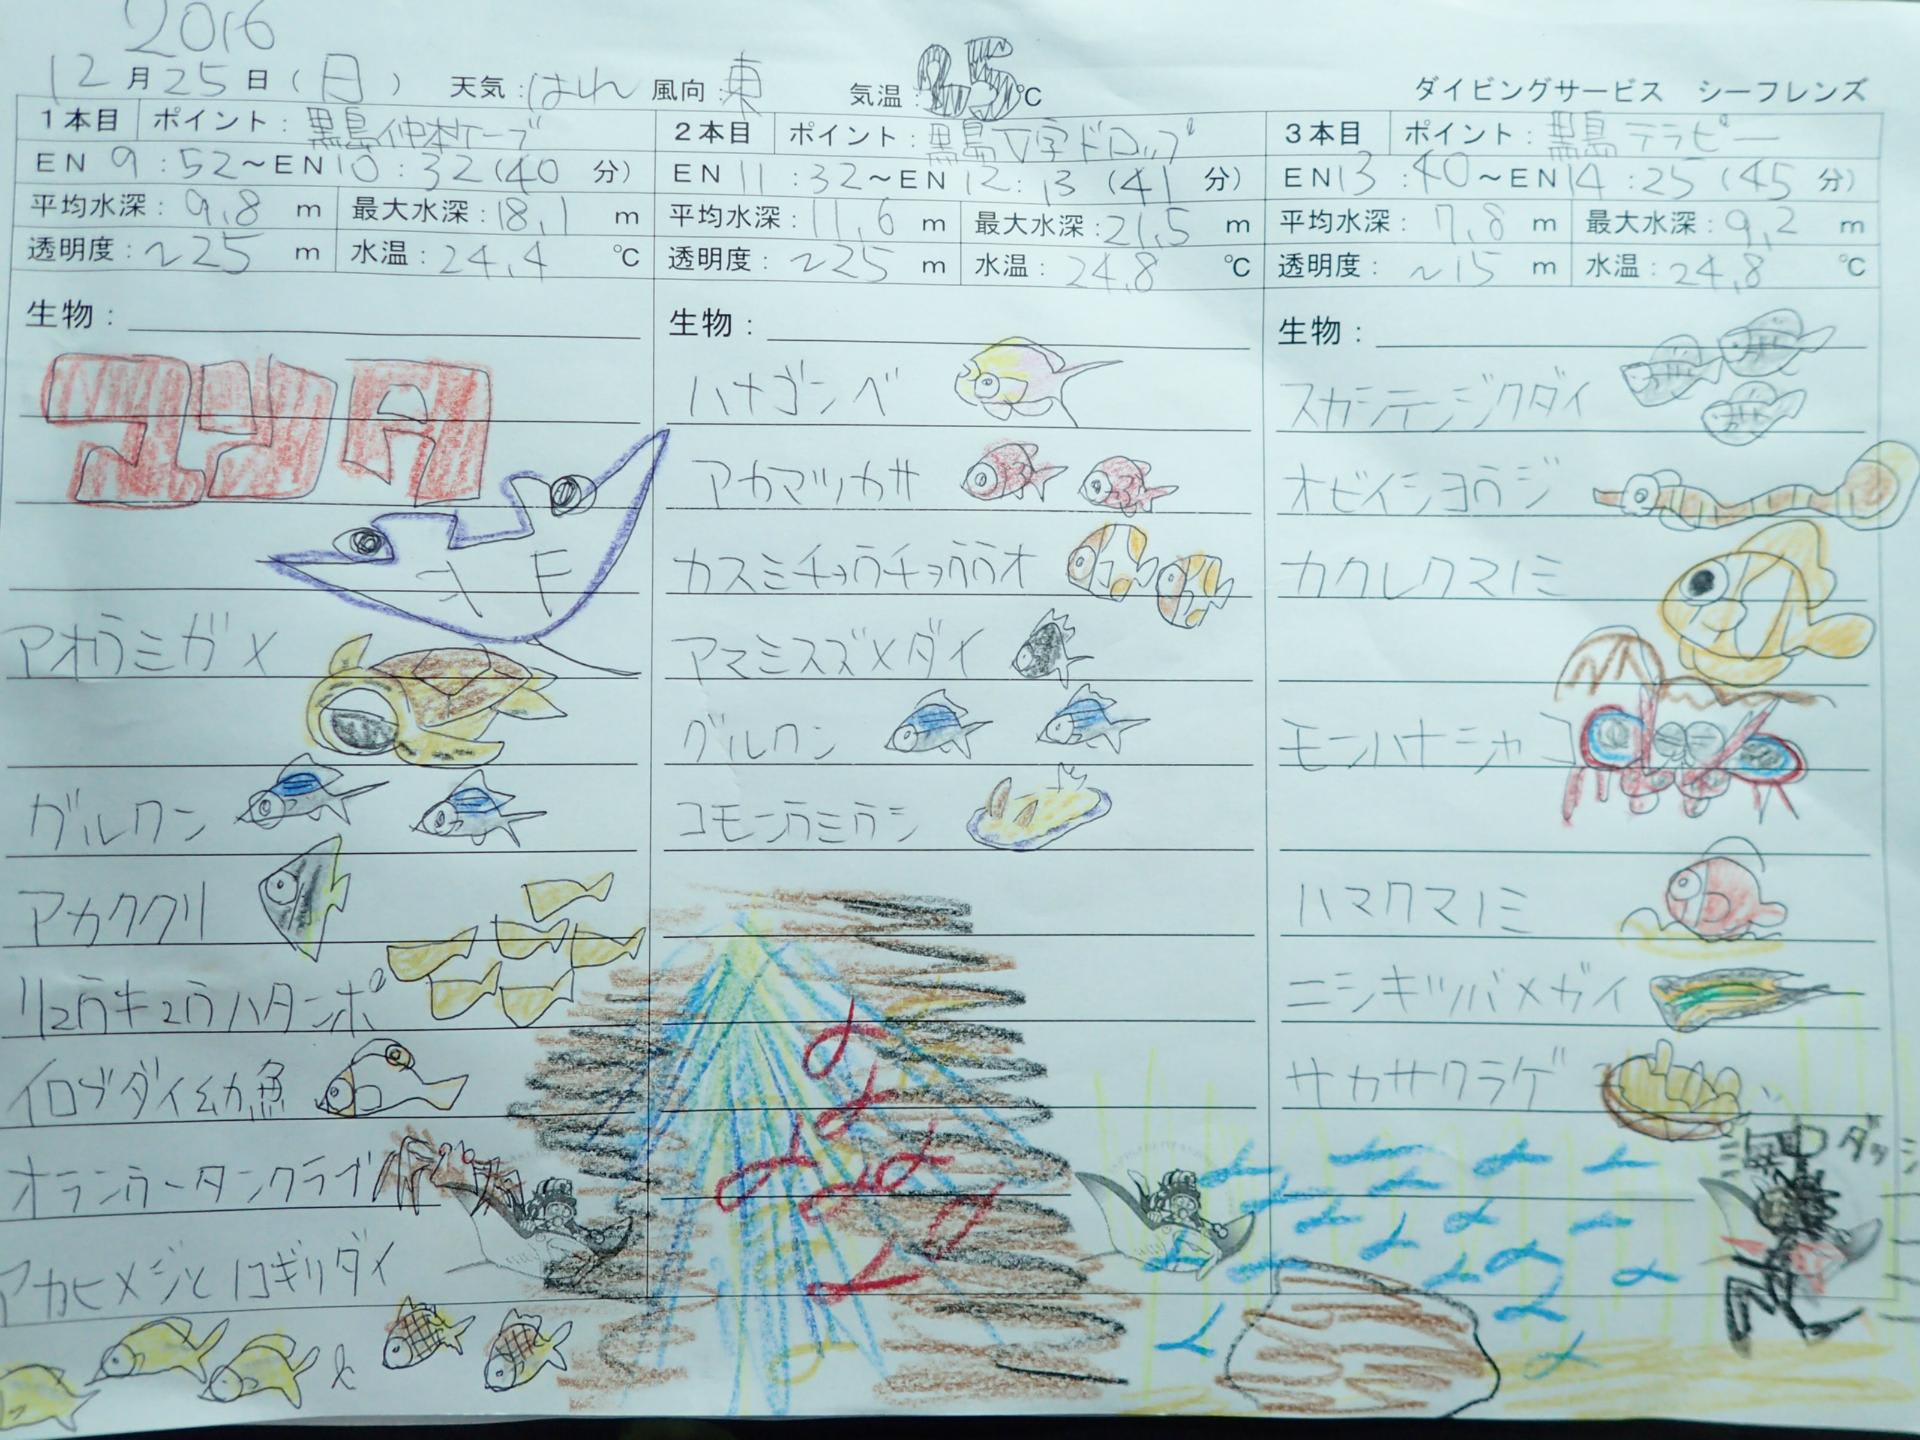 2016
12月25日(日) 天気:はれ 風向:東 気温:25℃ ダイビングサービス シーフレンズ
1本目 ポイント:黒島仲本ケーブ
EN 9:52～EN10:32(40分)
平均水深:9.8m 最大水深:18.1m
透明度:~25m 水温:24.4℃
生物:
マンタ
アオウミガメ
グルクン
アカククリ
リュウキュウハタンポ
イロブダイ幼魚
オランウータンクラブ
アカヒメジとノコギリダイ
&
2本目 ポイント:黒島V字ドロップ
EN 11:32～EN 12:13(41分)
平均水深:11.6m 最大水深:21.5m
透明度:~25m 水温:24.8℃
生物:
ハナゴンベ
アカマツカサ
カスミチョウチョウウオ
アマミスズメダイ
グルクン
コモンウミウシ
3本目 ポイント:黒島テラピー
EN13:40～EN14:25(45分)
平均水深:7.8m 最大水深:9.2m
透明度:~15m 水温:24.8℃
生物:
スカシテンジクダイ
オビイショウジ
カクレクマノミ
モンハナシャコ
ハマクマノミ
ニシキツバメガイ
サカサクラゲ